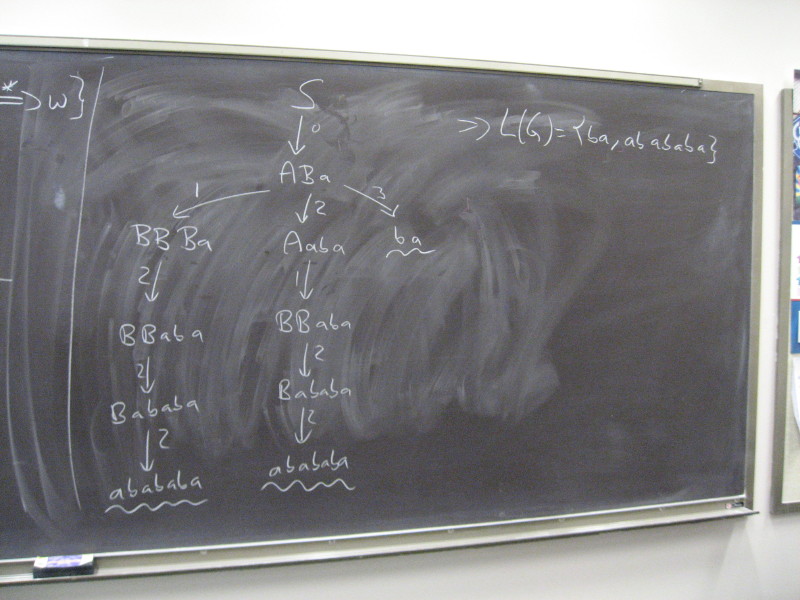 *
=> w}
S
0
ABa
1 2 3
BBBa Aaba ba
2 1
BBaba BBaba
2 2
Bababa Bababa
2 2
abababa abababa
=> L(G) = {ba, abababa}